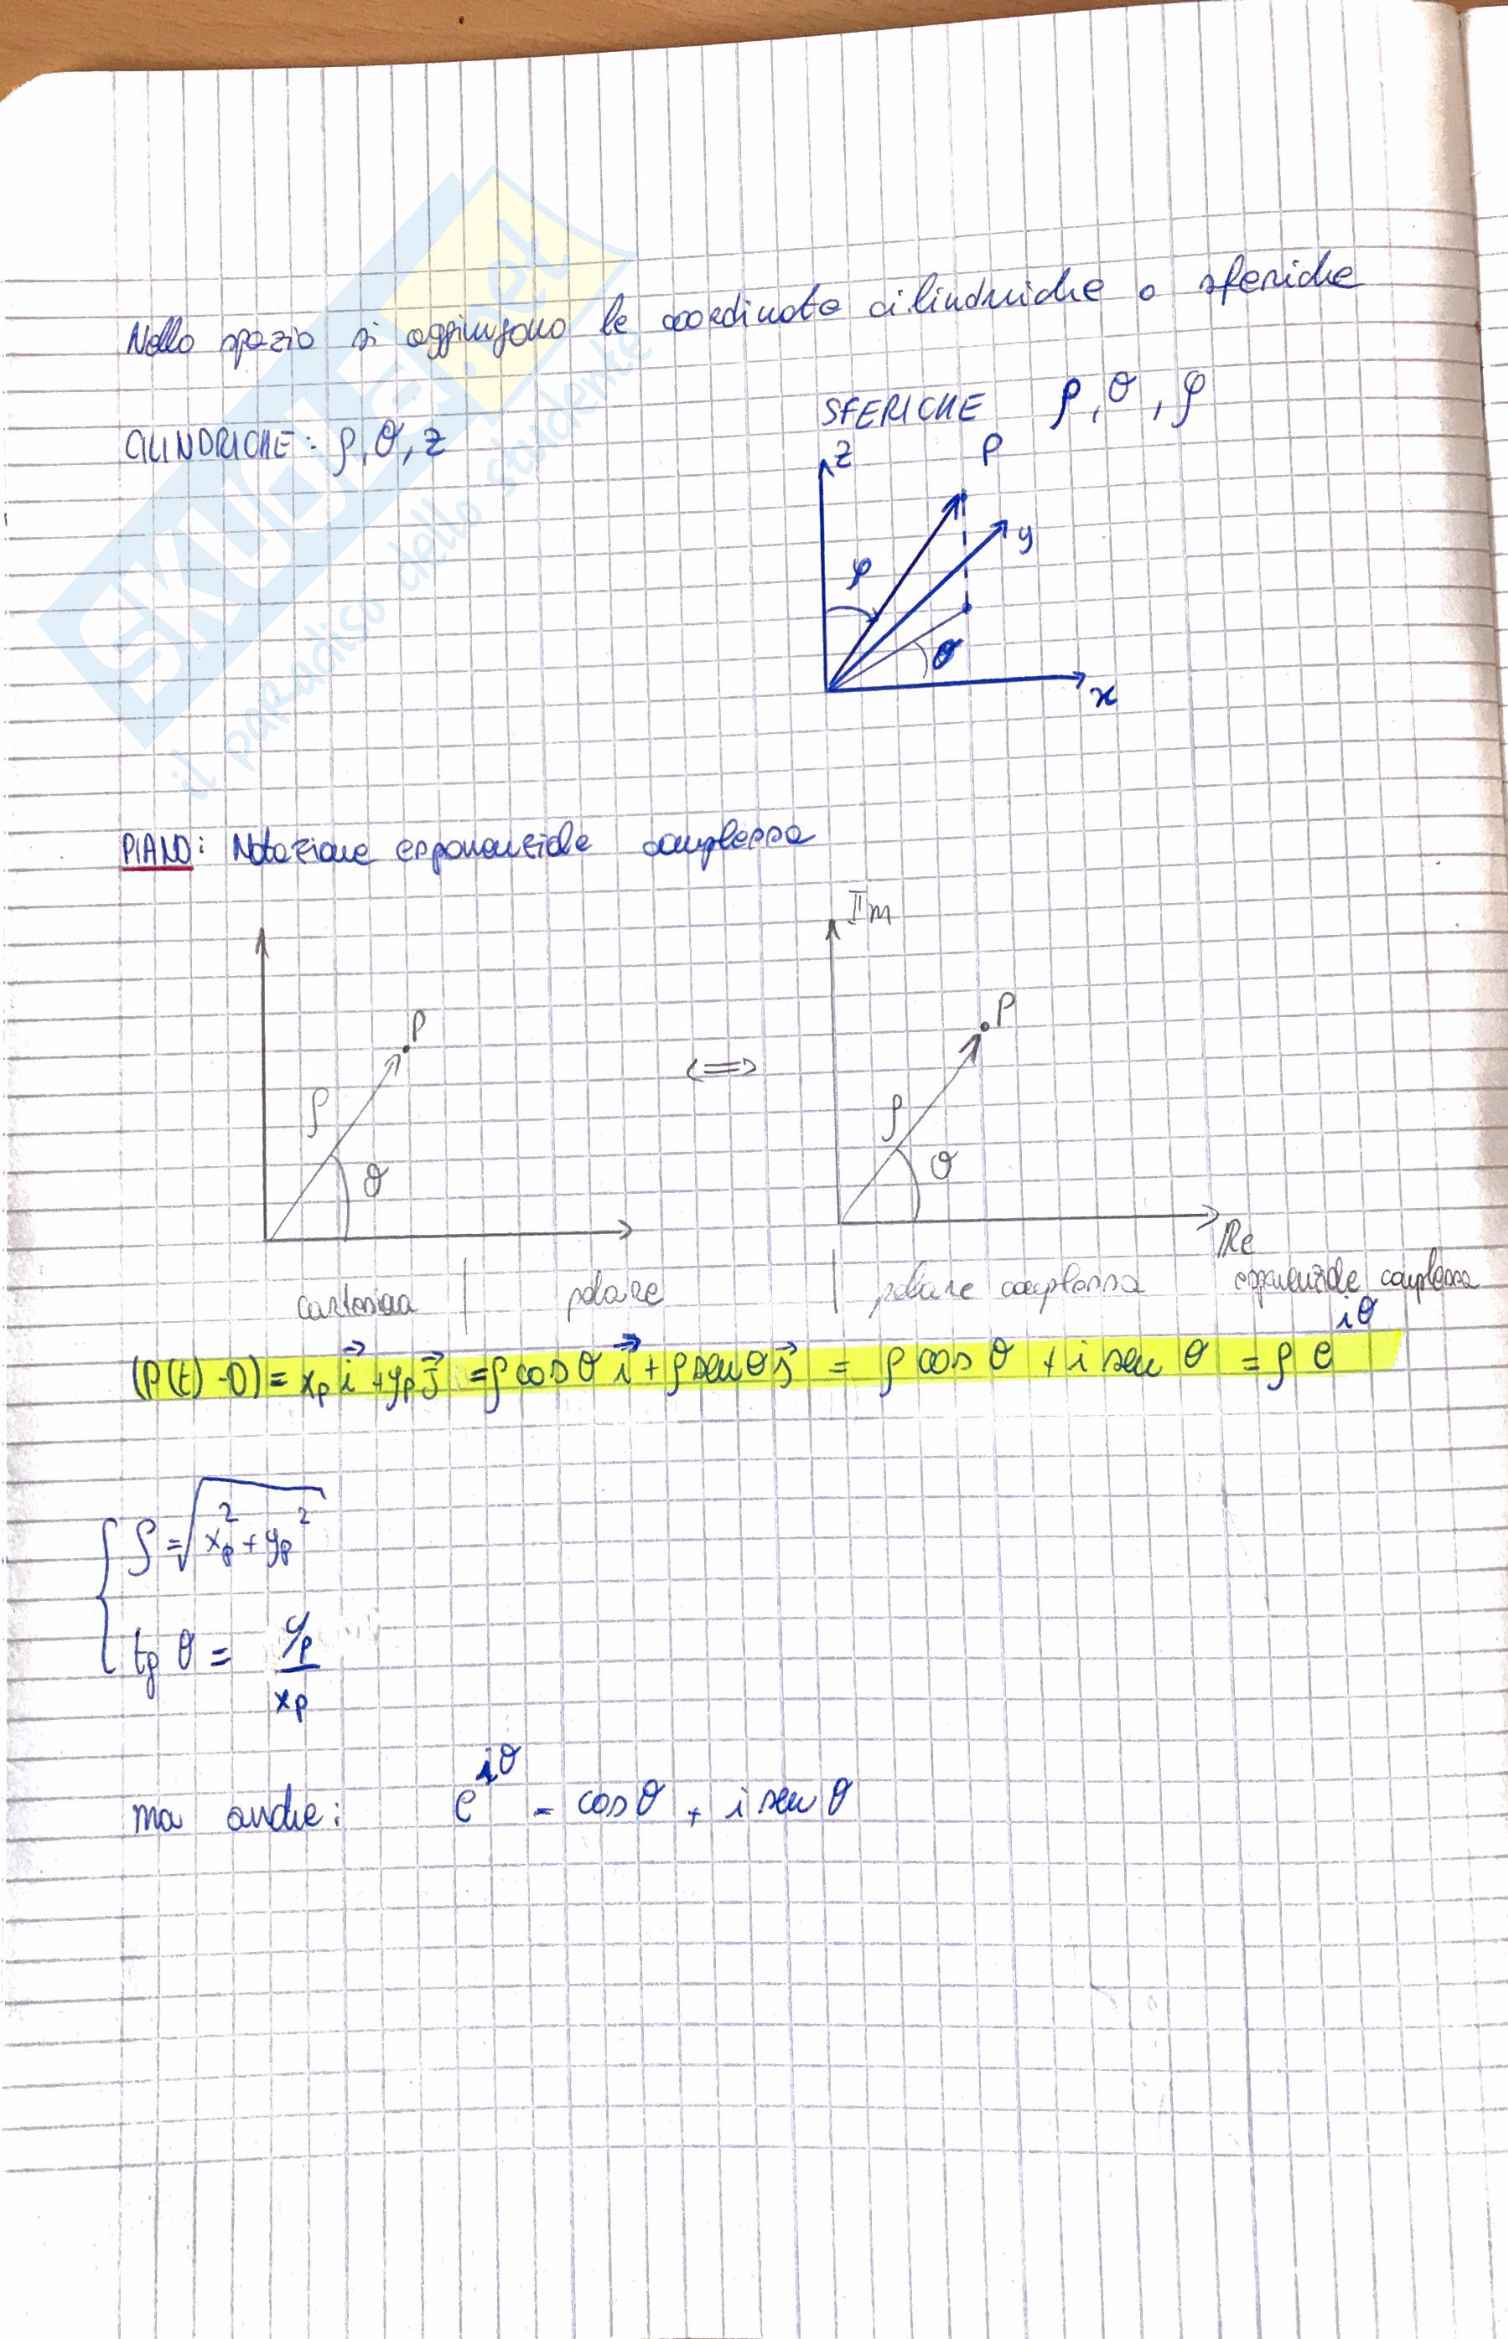 Nello spazio si aggiungono le coordinate cilindriche o sferiche
CILINDRICHE: ρ, θ, z
SFERICHE ρ, θ, φ
z
P
y
φ
θ
x
PIANO: Notazione esponenziale complessa
Im
P
P
<=>
ρ
ρ
θ
θ
Re
cartesiana | polare | polare complessa esponenziale complessa
(P(t)-O) = xₚ i⃗ + yₚ j⃗ = ρ cos θ i⃗ + ρ sen θ j⃗ = ρ cos θ + i sen θ = ρ e^{iθ}
{ ρ = √(xₚ² + yₚ²)
tg θ = yₚ / xₚ
ma anche: e^{iθ} = cos θ + i sen θ
SKUOLA.net
il paradiso dello studente